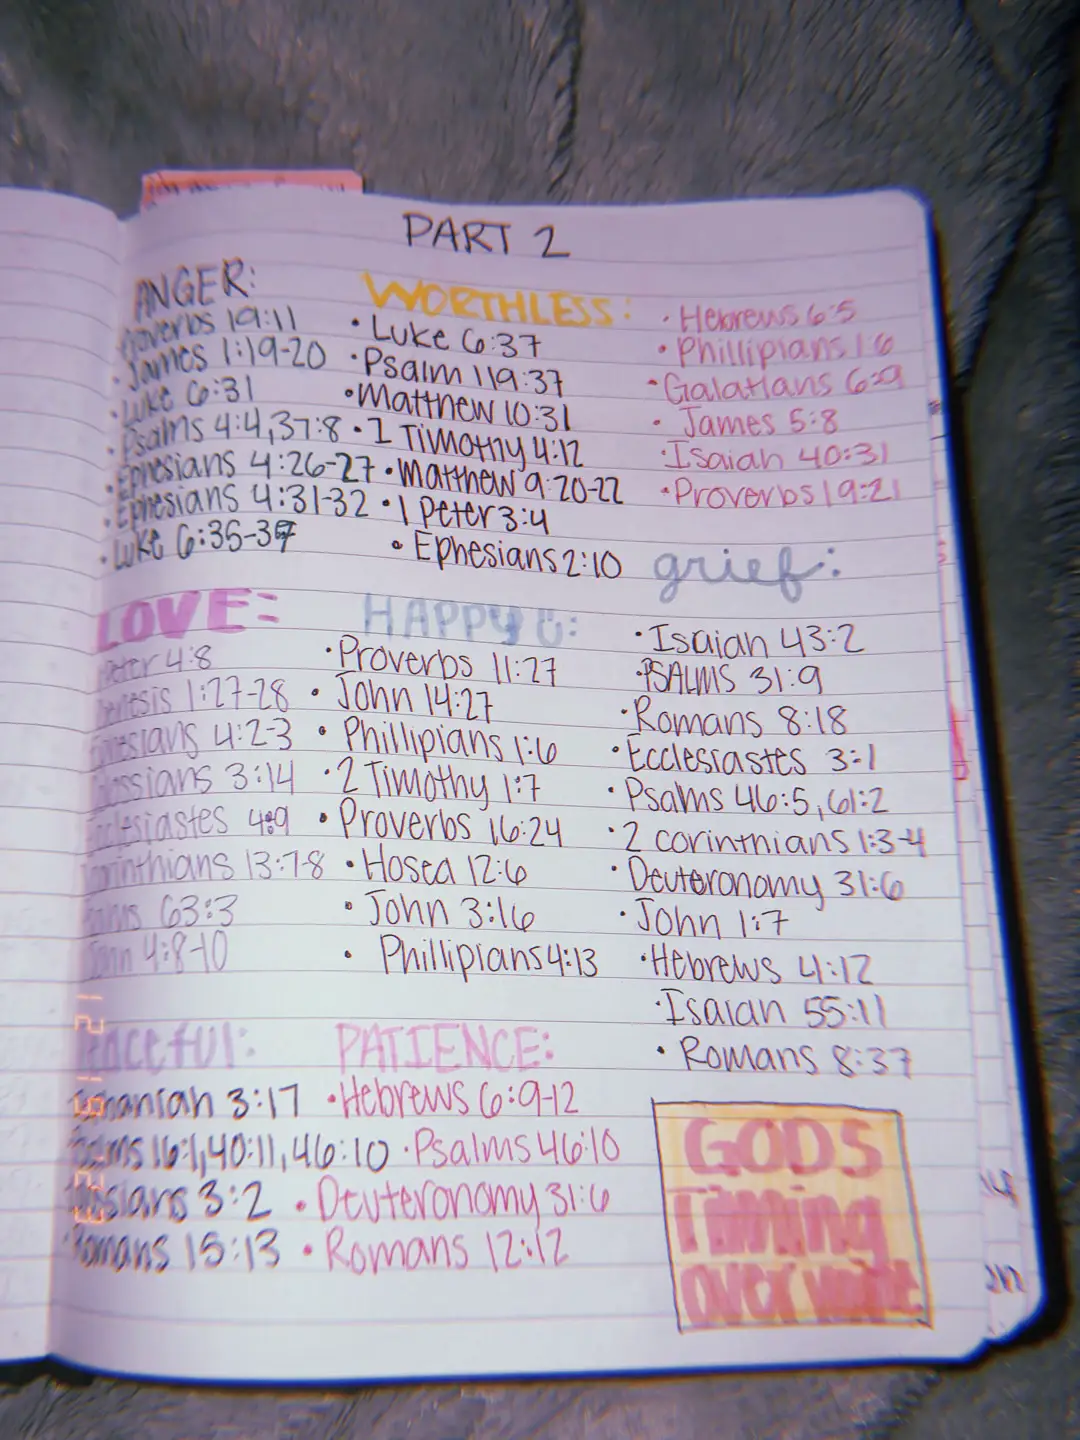 PART 2
ANGER:
Proverbs 19:11
• James 1:19-20
• Luke 6:31
• Psalms 4:4,37:8
• Ephesians 4:26-27
• Ephesians 4:31-32
• Luke 6:35-37
WORTHLESS:
• Luke 6:37
• Psalm 119:37
• Matthew 10:31
• 1 Timothy 4:12
• Matthew 9:20-22
• 1 Peter 3:4
• Ephesians 2:10
• Hebrews 6:5
• Phillipians 1:6
• Galatians 6:9
• James 5:8
• Isaiah 40:31
• Proverbs 19:21
grief:
• Isaiah 43:2
• PSALMS 31:9
• Romans 8:18
• Ecclesiastes 3:1
• Psalms 46:5,61:2
• 2 corinthians 1:3-4
• Deuteronomy 31:6
• John 1:7
• Hebrews 4:12
• Isaiah 55:11
• Romans 8:37
LOVE:
Peter 4:8
Genesis 1:27-28
Ephesians 4:2-3
Colossians 3:14
Ecclesiastes 4:9
Corinthians 13:7-8
Psalms 63:3
John 4:8-10
HAPPY
• Proverbs 11:27
• John 14:27
• Phillipians 1:6
• 2 Timothy 1:7
• Proverbs 16:24
• Hosea 12:6
• John 3:16
• Phillipians 4:13
Peaceful:
3:17
Psalms 16:1,40:11,46:10
3:2
Romans 15:13
PATIENCE:
• Hebrews 6:9-12
• Psalms 46:10
• Deuteronomy 31:6
• Romans 12:12
GODS
Timing
over